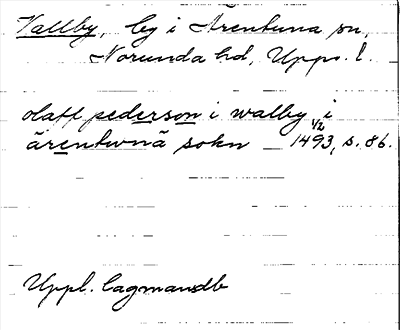 Vallby, by i Ärentuna sn,
Norunda hd, Upps. l.
olaff pederson i walby i
ärentwnä sokn 1/2 1493, s. 86.
Uppl. lagmansdb